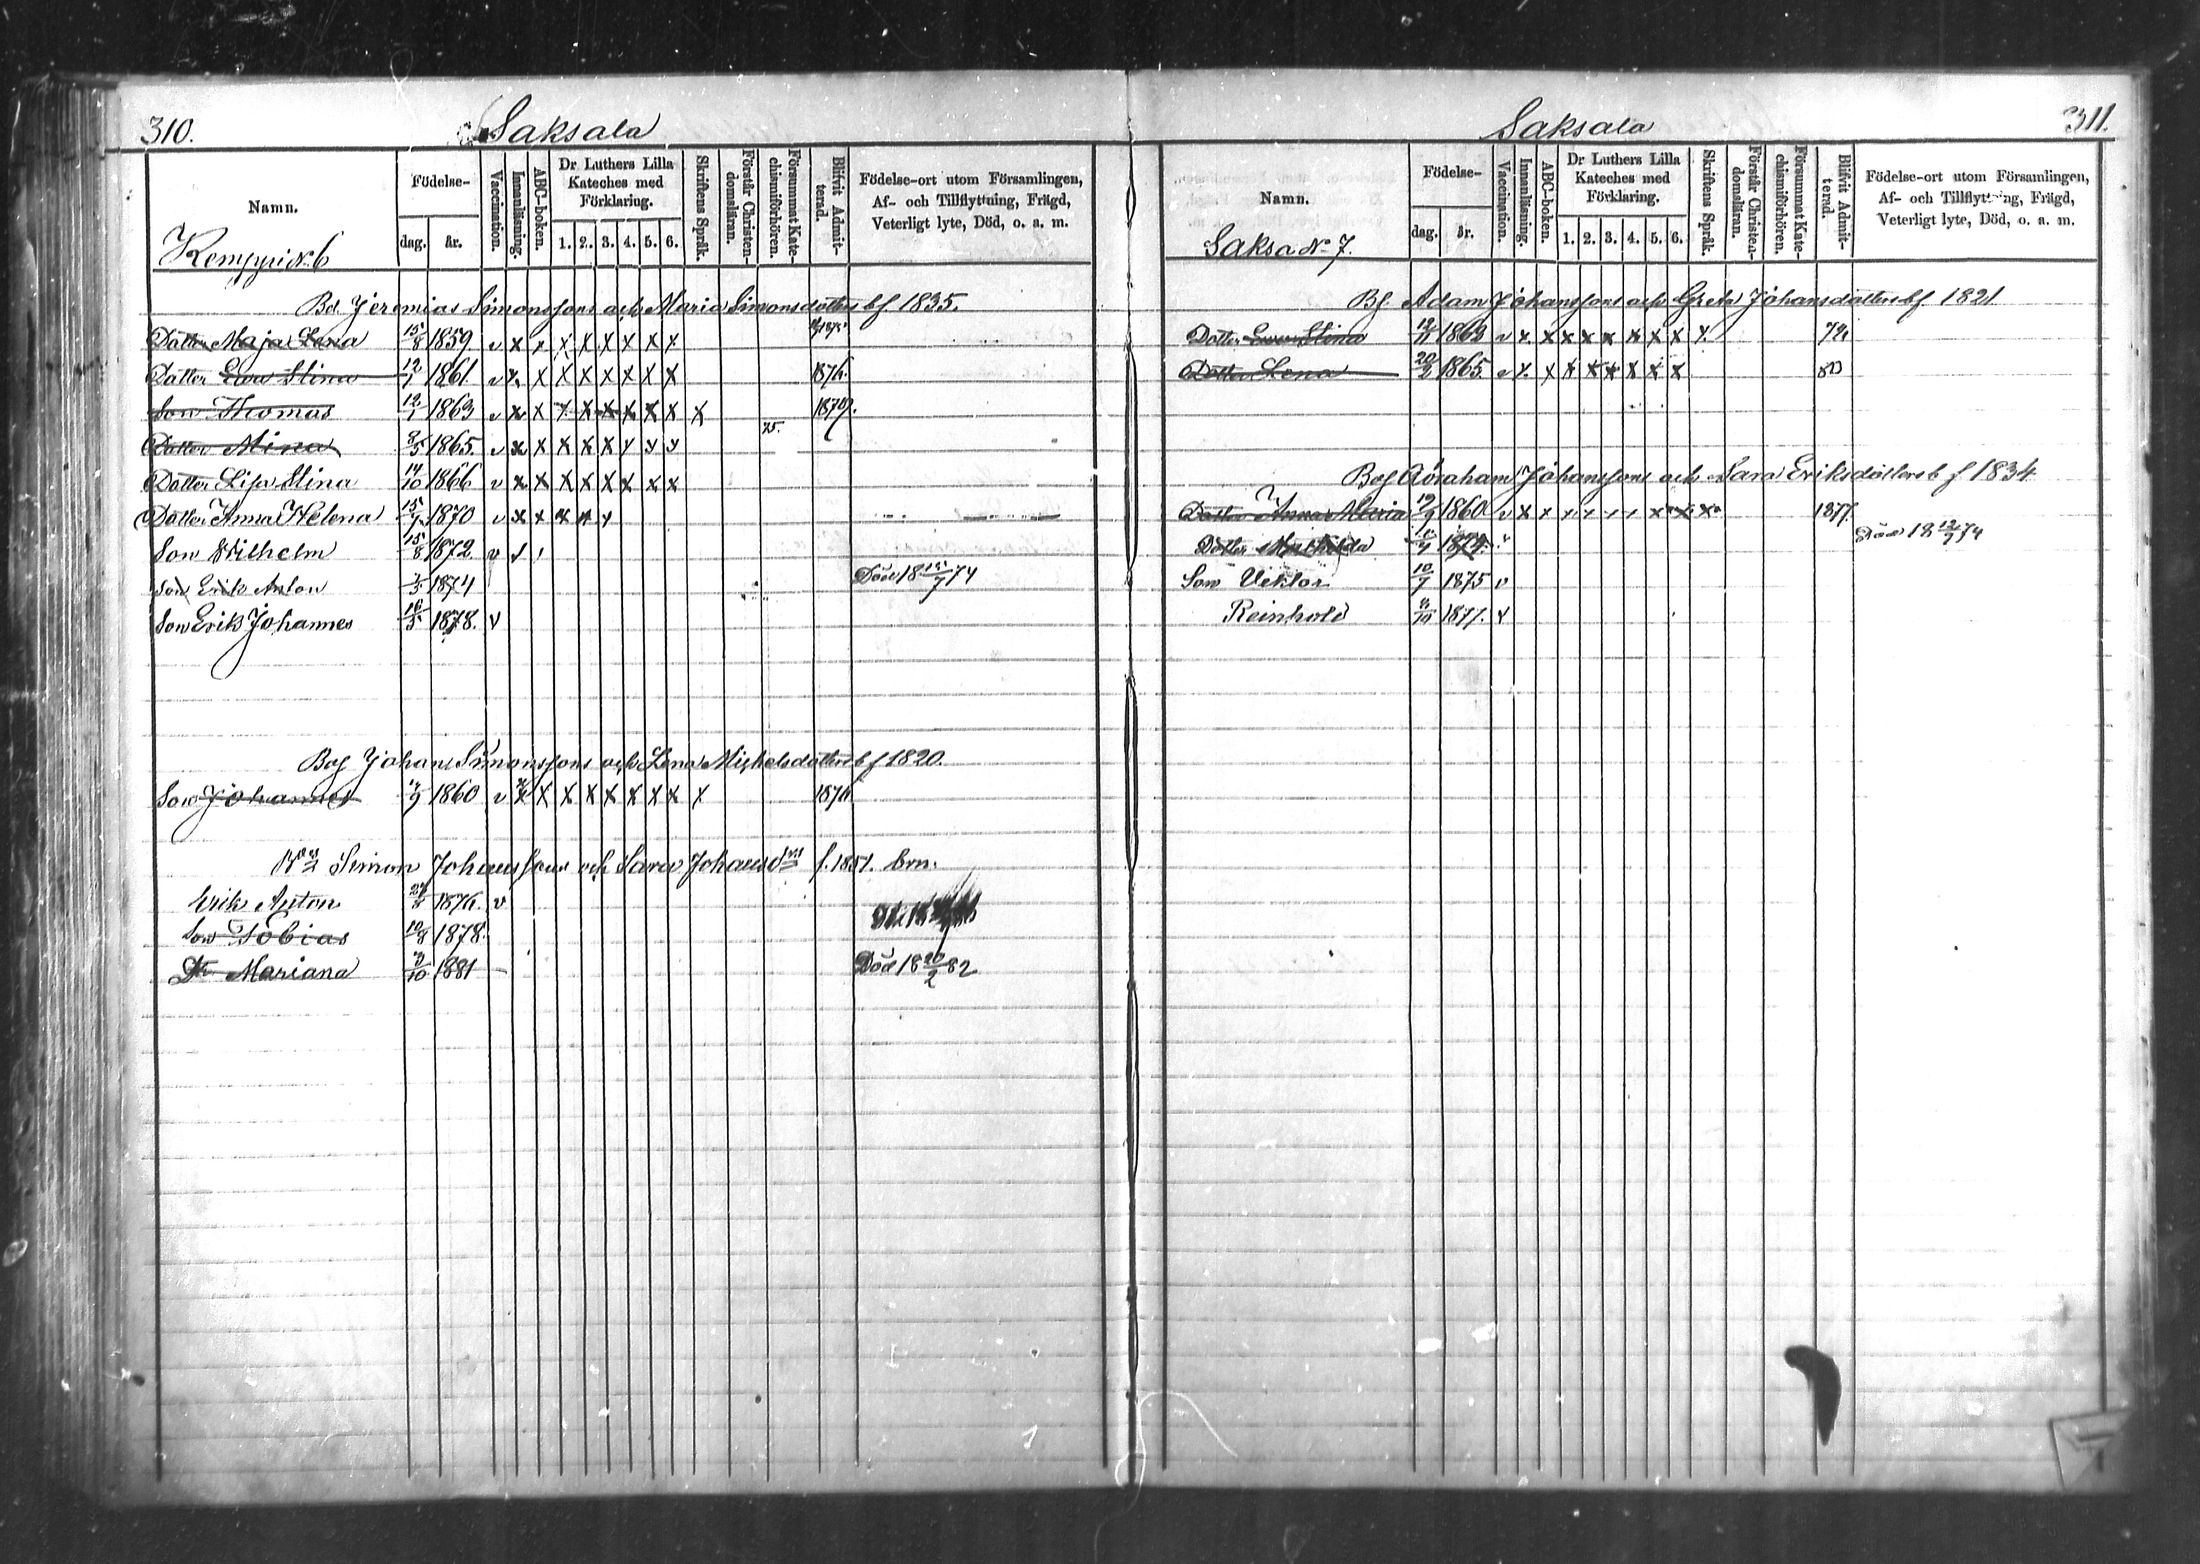 310.
Saksala
Namn.
Födelse-
dag.
år.
Vaccination.
Innanläsning.
ABC-boken.
Dr Luthers Lilla
Kateches med
Förklaring.
1. 2. 3. 4. 5. 6.
Skriftens Språk.
Förstår Christen-
domsläran.
Försummat Kate-
chismiförhören.
Blifvit Admit-
terad.
Födelse-ort utom Församlingen,
Af- och Tillflyttning, Frägd,
Veterligt lyte, Död, o. a. m.
Kemppi N. 6
Bd. Jeremias Simonssons och Maria Simonsdotters bf 1835.
Dotter Maja Lena 15/8 1859 v x x x x x x x x
Dotter Ewa Stina 12/7 1861. v x x x x x x x x 1876.
Son Thomas 12/1 1863 v x x x x x x x x x
75.
Dotter Mina 1865. v x x x x x x x x
Dotter Lisa Stina 14/10 1866 v x x x x x x x x
Dotter Anna Helena 15/7 1870 v x x x x x
Son Wilhelm 15/8 1872. v
Son Erik Anton 1874 Död 18 15/7 74
Son Erik Johannes 16/5 1878. v
Bds Johans Simonssons och Lena Michelsdotters bf 1820.
Son Johannes 1860 v x x x x x x x x x 1876
Simon Johanssons och Sara Johansd f. 1851. brn.
Erik Anton 1876. v
Son Tobias 10/8 1878.
Dr Mariana 3/10 1881 — Död 18 20/2 82
311.
Saksala
Namn.
Födelse-
dag.
år.
Vaccination.
Innanläsning.
ABC-boken.
Dr Luthers Lilla
Kateches med
Förklaring.
1. 2. 3. 4. 5. 6.
Skriftens Språk.
Förstår Christen-
domsläran.
Försummat Kate-
chismiförhören.
Blifvit Admit-
terad.
Födelse-ort utom Församlingen,
Af- och Tillflyttning, Frägd,
Veterligt lyte, Död, o. a. m.
Saksa N. 7.
Bf. Adam Johanssons och Greta Johansdotters bf 1821.
Dotter Ewa Stina 12/11 1863 v x x x x x x x x x
Dotter Lena 20/2 1865. v x x x x x x x x
Abraham Johanssons och Sara Eriksdotters b f 1834
Dotter Anna Maria 19/9 1860 v x x x x x x x x x 1877.
Dotter Mathilda 1874. v Död 18 12/7 74
Son Viktor 10/7 1875 v
Reinhold 1877. v